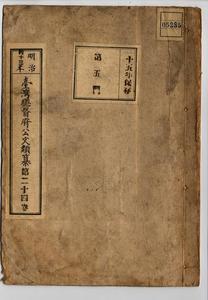 05285
十五年保存
第五門
明治
臺灣總督府公文類纂第二十四卷